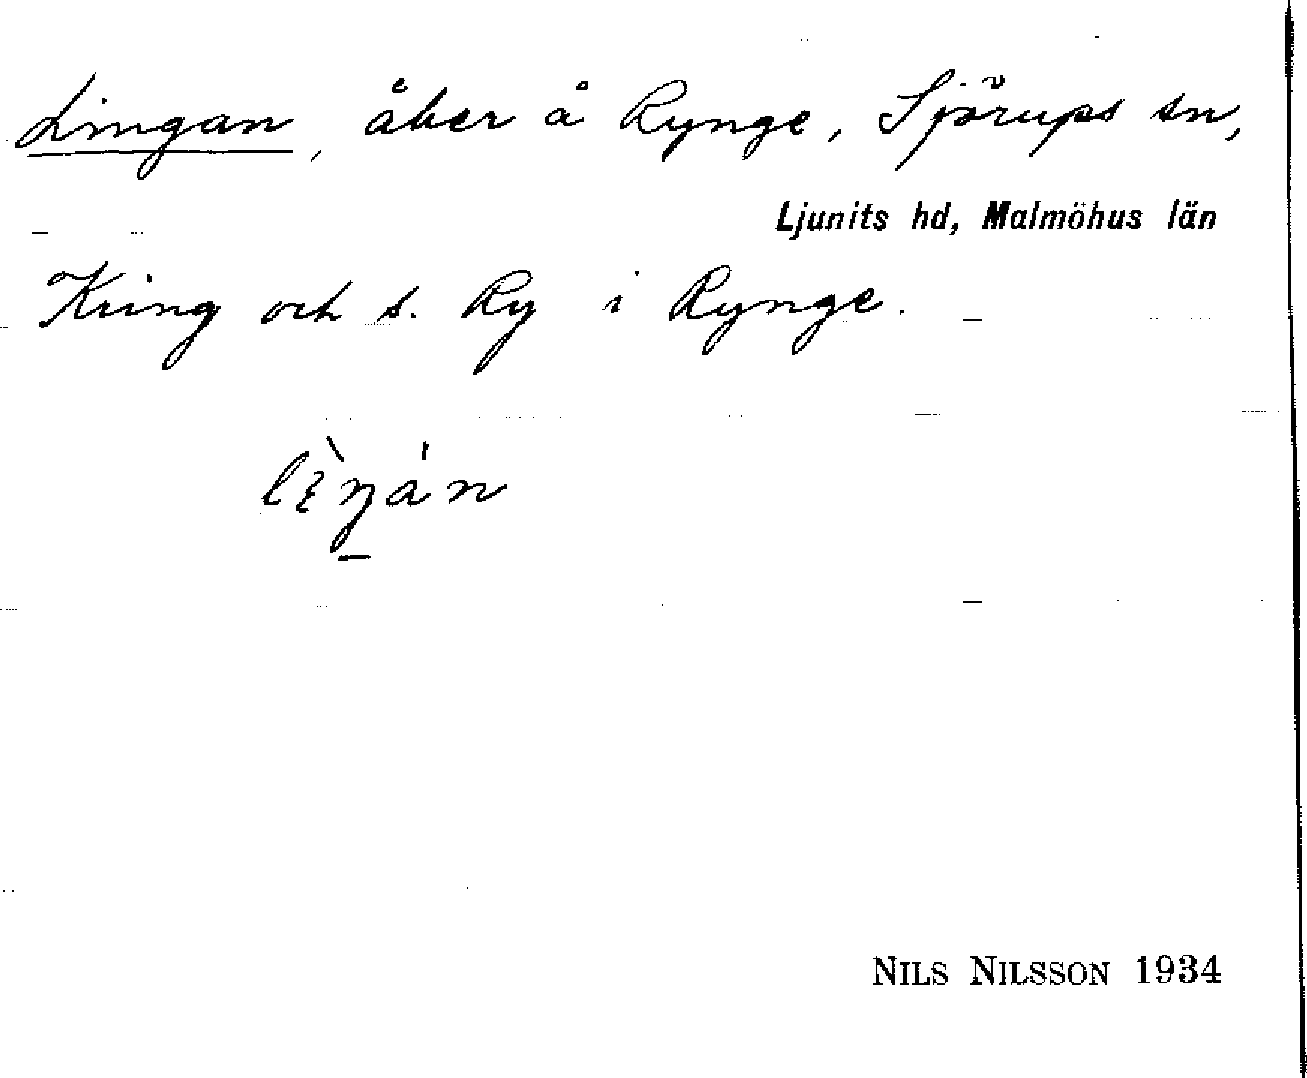 Lingan, åker å Rynge, Sjörups sn,
Ljunits hd, Malmöhus län
Kring och s. Ry i Rynge.
NILS NILSSON 1934